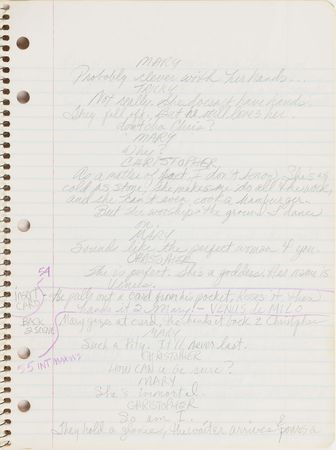 MARY
Probably clever with her hands...
TRICKY
Not really. She doesn't have hands.
They fell off. But he still loves her
dontcha Chris?
MARY
Why?
CHRISTOPHER
As a matter of fact, I don't know. She's as
cold as stone, she makes me do all the work,
and she can't even cook a hamburger.
But she worships the ground I dance
on.
MARY
Sounds like the perfect woman 4 you.
CHRISTOPHER
She is perfect. She's a goddess. Her name is
Venus.
54
INSERT
CARD
He pulls out a card from his pocket, kisses it, then
hands it 2 Mary - VENUS de MILO
BACK
2 SCENE
Mary gazes at card, then hands it back 2 Christopher
MARY
Such a pity. It'll never last.
55 INT
CHRISTOPHER
How can u be sure?
MARY
She's immortal.
CHRISTOPHER
So am I.
They hold a gaze, the waiter arrives